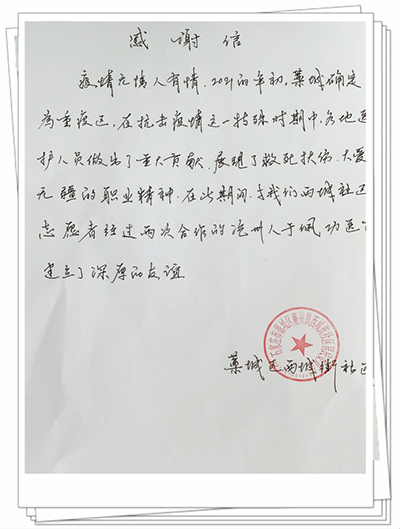 感谢信
疫情无情人有情,2021的年初,藁城确定
为重疫区,在抗击疫情这一特殊时期中,各地医
护人员做出了重大贡献,展现了救死扶伤,大爱
无疆的职业精神.在此期间,与我们西城社区
志愿者经过两次合作的沧州人于佩功医
建立了深厚的友谊
藁城区西城街社区